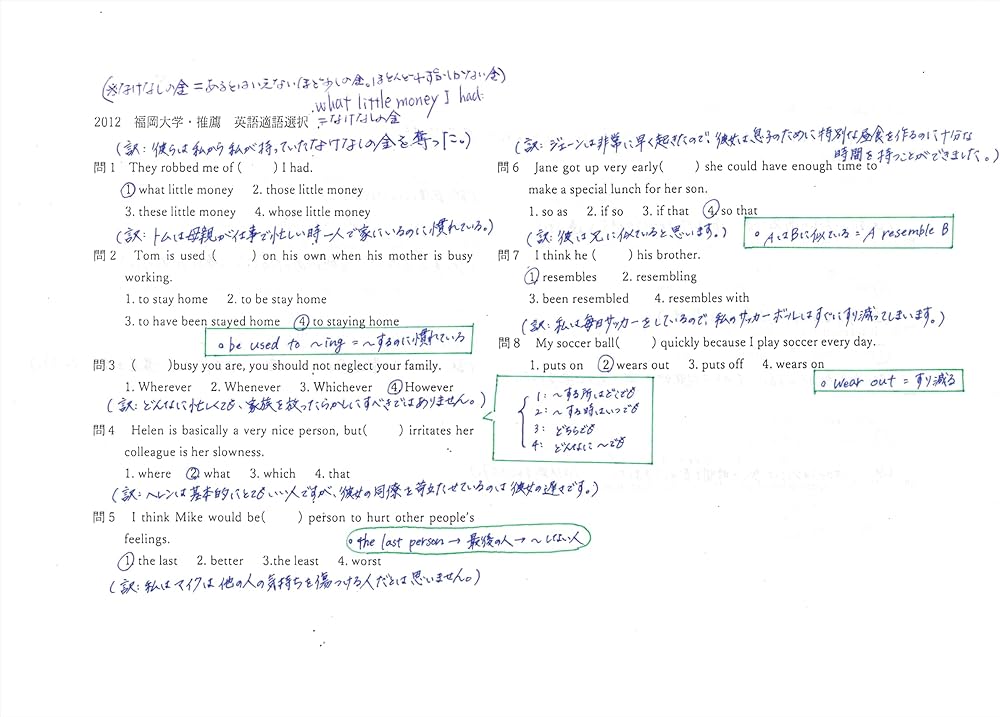 (※なけなしの金=あるとはいえないほど少しの金。ほとんどわずかしかない金)
what little money I had
=なけなしの金
2012 福岡大学・推薦 英語適語選択
(訳:彼らは私から私が持っていたなけなしの金を奪った。)
問1 They robbed me of ( ) I had.
①what little money 2. those little money
3. these little money 4. whose little money
(訳:トムは母親が仕事で忙しい時一人で家にいるのに慣れている。)
問2 Tom is used ( ) on his own when his mother is busy
working.
1. to stay home 2. to be stay home
3. to have been stayed home ④to staying home
◦be used to ~ing = ~するのに慣れている
問3 ( )busy you are, you should not neglect your family.
1. Wherever 2. Whenever 3. Whichever ④However
(訳:どんなに忙しくても、家族を放ったらかしにすべきではありません。)
1:~する所はどこでも
2:~する時はいつでも
3:どちらでも
4:どんなに~でも
問4 Helen is basically a very nice person, but( ) irritates her
colleague is her slowness.
1. where ②what 3. which 4. that
(訳:ヘレンは基本的にとてもいい人ですが、彼女の同僚を苛立たせているのは彼女の遅さです。)
問5 I think Mike would be( ) person to hurt other people's
feelings.
◦the last person → 最後の人 → ~しない人
①the last 2. better 3.the least 4. worst
(訳:私はマイクは他の人の気持ちを傷つける人だとは思いません。)
(訳:ジェーンは非常に早く起きたので、彼女は息子のために特別な昼食を作るのに十分な
時間を持つことができました。)
問6 Jane got up very early( ) she could have enough time to
make a special lunch for her son.
1. so as 2. if so 3. if that ④so that
(訳:彼は兄に似ていると思います。)
◦AはBに似ている=A resemble B
問7 I think he ( ) his brother.
①resembles 2. resembling
3. been resembled 4. resembles with
(訳:私は毎日サッカーをしているので、私のサッカーボールはすぐにすり減ってしまいます。)
問8 My soccer ball( ) quickly because I play soccer every day.
1. puts on ②wears out 3. puts off 4. wears on
◦wear out = すり減る